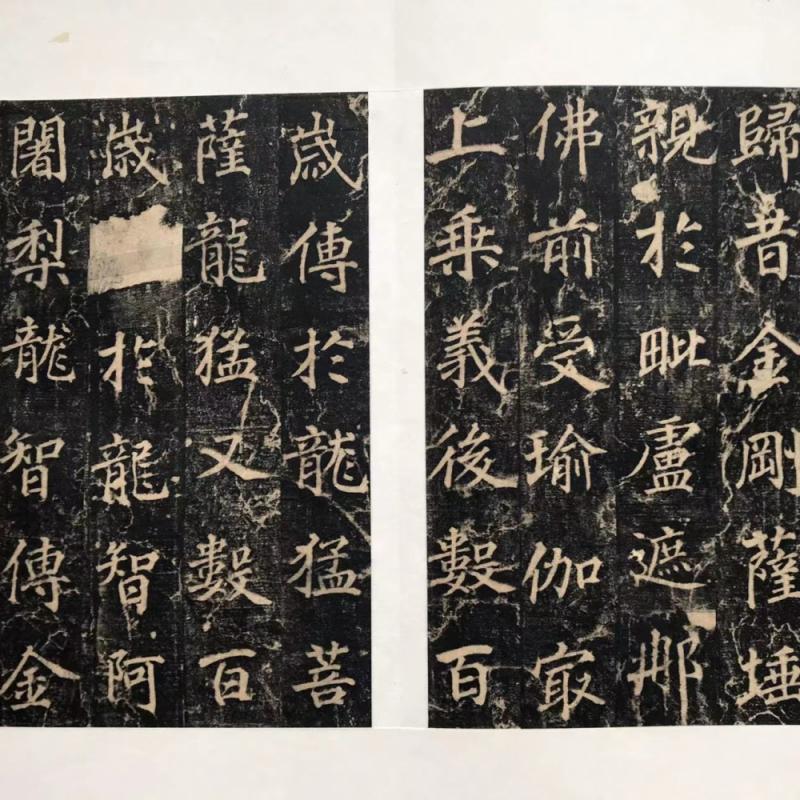 歸昔金剛薩埵
親於毗盧遮那
佛前受瑜伽㝡
上乗義後數百
歲傳於龍猛菩
薩龍猛又數百
歲於龍智阿
闍梨龍智傳金